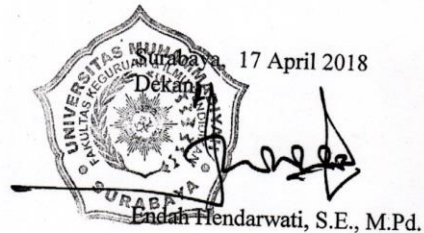 Surabaya, 17 April 2018
Dekan
UNIVERSITAS MUHAMMADIYAH
FAKULTAS KEGURUAN & ILMU PENDIDIKAN
SURABAYA
Endah Hendarwati, S.E., M.Pd.